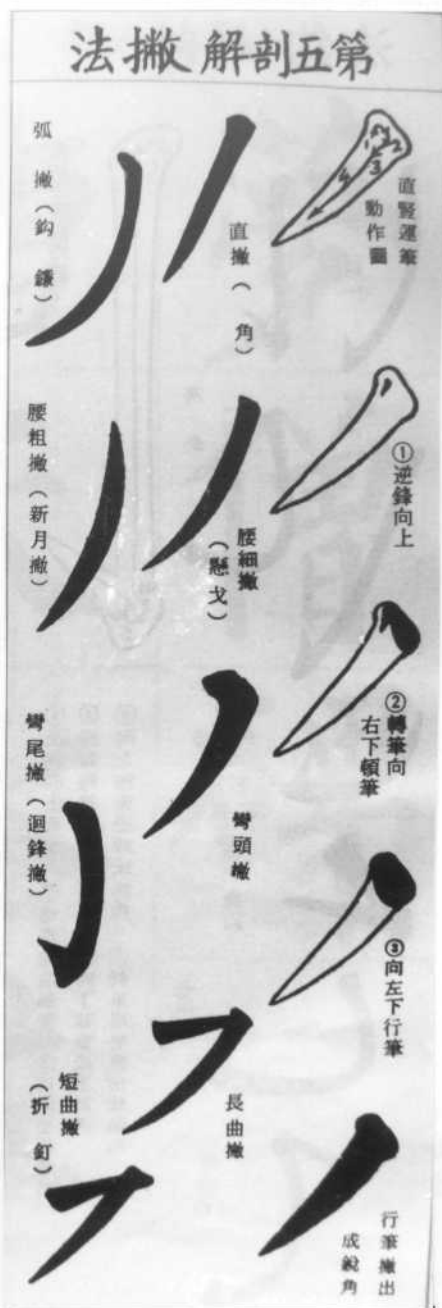 第五剖解撇法
直豎運筆
動作圖
1
2
3
4
①逆鋒向上
②轉筆向
右下頓筆
③向左下行筆
行筆撇出
成銳角
直撇（ 角）
腰細撇
（懸戈）
彎頭撇
長曲撇
弧撇（鈎鐮）
腰粗撇（新月撇）
彎尾撇（迴鋒撇）
短曲撇
（折釘）